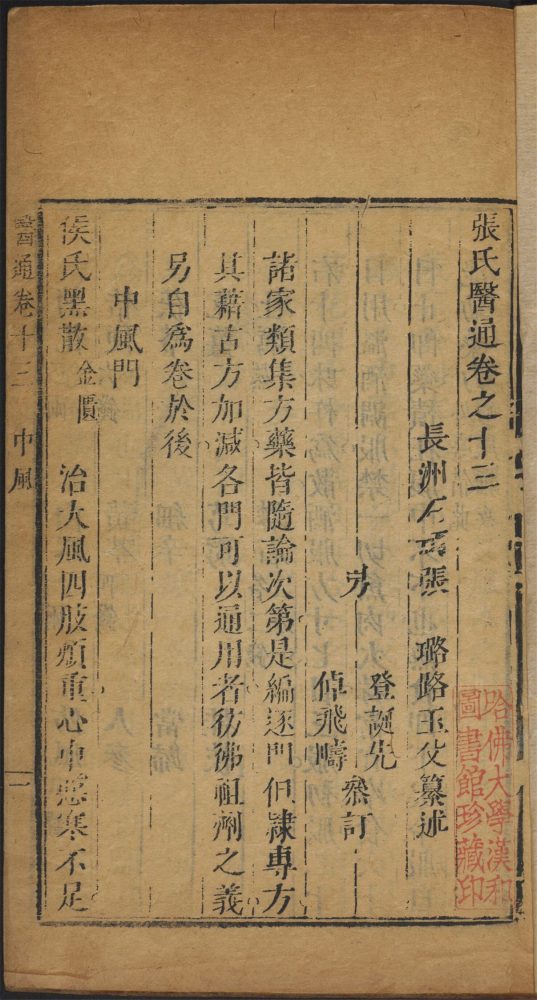 張氏醫通卷之十三
長洲石頑張　璐路玉父纂述
男　登誕先
倬飛疇　參訂
諸家類集方藥皆隨論次第是編逐門但隸專方
其藉古方加減各門可以通用者彷彿祖劑之義
另自為卷於後
中風門
侯氏黑散　金匱　治大風四肢煩重心中惡寒不足
醫通卷十三　中風　一
哈佛大學漢和
圖書館珍藏印